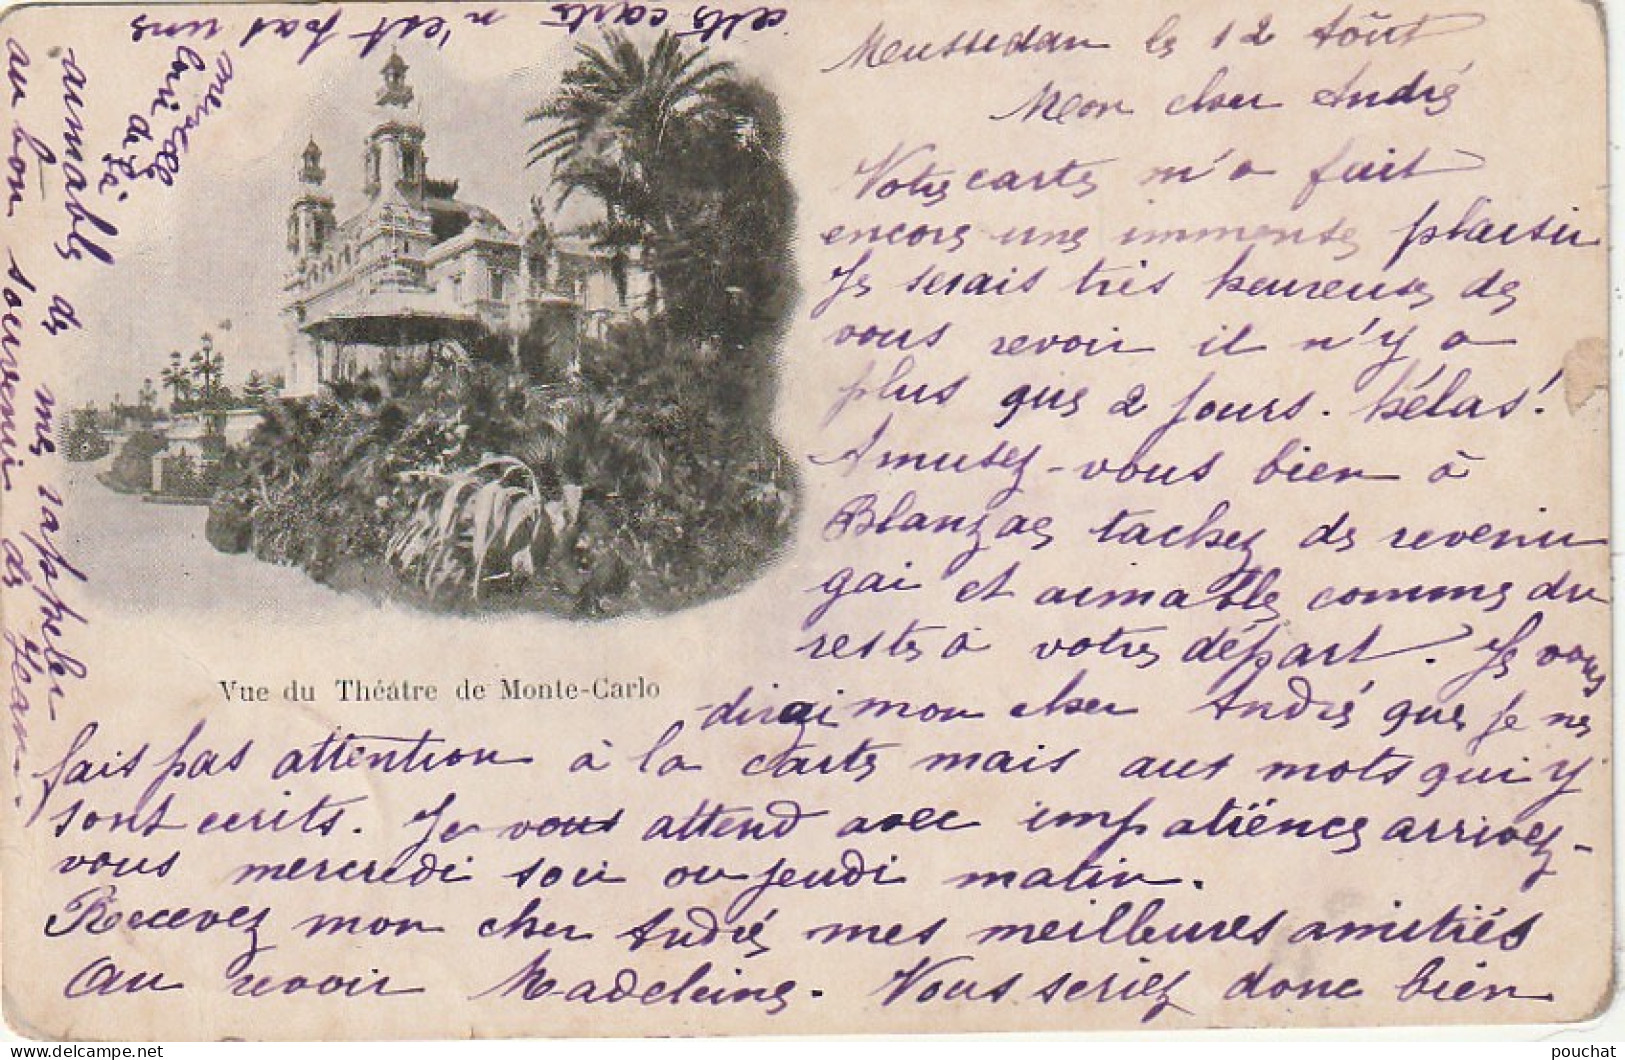 Mussidan le 12 Août
Mon cher André
Votre carte m'a fait
encore une immense plaisir
Je serais très heureuse de
vous revoir il n'y a
plus que 2 jours. hélas!
Amusez-vous bien à
Blanzac tachez de revenir
gai et aimable comme du
reste à votre départ. Je vous
dirai mon cher André que je ne
fais pas attention à la carte mais aus mots qui y
sont ecrits. Je vous attend avec impatiënce arrivez-
vous mercredi soir ou jeudi matin.
Recevez mon cher André mes meilleures amitiés
Au revoir Madeleine. Vous seriez donc bien
aimable de me rappeler
au bon souvenir de Jean.
cette carte n'est pas une
Vue du Théâtre de Monte-Carlo
pouchat